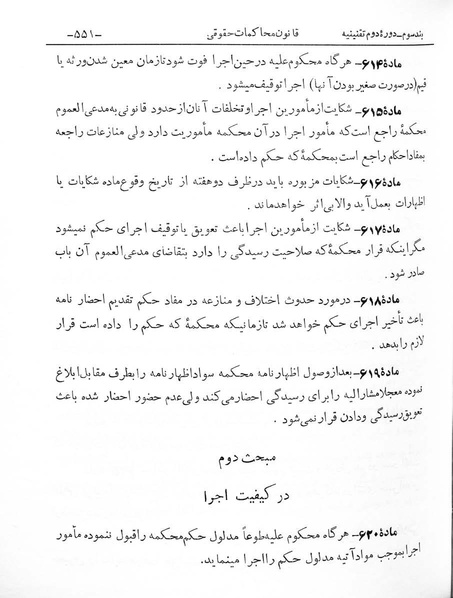 بند سوم ـ دورهٔ دوم تقنینیه قانون محاکمات حقوقی ـ۵۵۱ـ
مادهٔ ۶۱۴ـ هر گاه محکوم علیه در حین اجرا فوت شود تا زمان معین شدن ورثه یا
قیم (در صورت صغیر بودن آنها) اجرا توقیف میشود.
مادهٔ ۶۱۵ـ شکایت از مأمورین اجرا و تخلفات آنان از حدود قانونی به مدعی العموم
محکمهٔ راجع است که مأمور اجرا در آن محکمه مأموریت دارد ولی منازعات راجعه
بمفاد احکام راجع است بمحکمهٔ که حکم داده است.
مادهٔ ۶۱۶ـ شکایات مزبوره باید در ظرف دو هفته از تاریخ وقوع ماده شکایات یا
اظهارات بعمل آید والا بی اثر خواهد ماند.
مادهٔ ۶۱۷ـ شکایت از مأمورین اجرا باعث تعویق یا توقیف اجرای حکم نمیشود
مگر اینکه قرار محکمهٔ که صلاحیت رسیدگی را دارد بتقاضای مدعی العموم آن باب
صادر شود.
مادهٔ ۶۱۸ـ در مورد حدوث اختلاف و منازعه در مفاد حکم تقدیم احضار نامه
باعث تأخیر اجرای حکم خواهد شد تا زمانیکه محکمهٔ که حکم را داده است قرار
لازم را بدهد.
مادهٔ ۶۱۹ـ بعد از وصول اظهار نامه محکمه سواد اظهار نامه را بطرف مقابل ابلاغ
نموده معجلا مشارالیه را برای رسیدگی احضار می کند ولی عدم حضور احضار شده باعث
تعویق رسیدگی و دادن قرار نمی شود.
مبحث دوم
در کیفیت اجرا
مادهٔ ۶۲۰ـ هر گاه محکوم علیه طوعاً مدلول حکم محکمه را قبول ننموده مأمور
اجرا بموجب مواد آتیه مدلول حکم را اجرا مینماید.